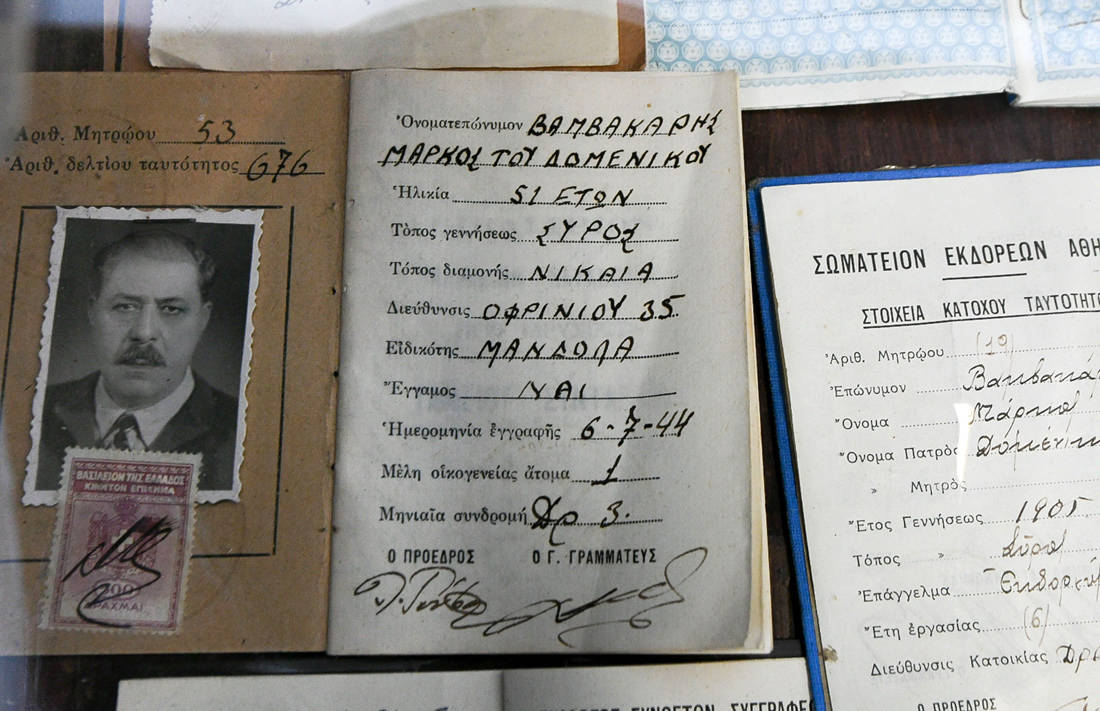 Ἀριθ. Μητρώου 53
Ἀριθ. δελτίου ταυτότητος 676
ΒΑΣΙΛΕΙΟΝ ΤΗΣ ΕΛΛΑΔΟΣ
ΚΙΝΗΤΟΝ ΕΠΙΣΗΜΑ
ΔΡΑΧΜΑΙ
Ὀνοματεπώνυμον ΒΑΜΒΑΚΑΡΗΣ
ΜΑΡΚΟΣ ΤΟΥ ΔΟΜΕΝΙΚΟΥ
Ἡλικία 51 ΕΤΩΝ
Τὸπος γεννήσεως ΣΥΡΟΣ
Τόπος διαμονῆς ΝΙΚΑΙΑ
Διεύθυνσις ΟΦΡΙΝΙΟΥ 35
Εἰδικότης ΜΑΝΔΟΛΑ
Ἔγγαμος ΝΑΙ
Ἡμερομηνία ἐγγραφῆς 6-7-44
Μέλη οἰκογενείας ἄτομα 1
Μηνιαία συνδρομή Δρ 3.
Ο ΠΡΟΕΔΡΟΣ Ο Γ. ΓΡΑΜΜΑΤΕΥΣ
ΣΩΜΑΤΕΙΟΝ ΕΚΔΟΡΕΩΝ ΑΘΗ
ΣΤΟΙΧΕΙΑ ΚΑΤΟΧΟΥ ΤΑΥΤΟΤΗΤΟ
Ἀριθ. Μητρώου (19)
Ἐπώνυμον Βαμβακά
Ὄνομα Μάρκο
Ὄνομα Πατρὸς Δομένικ
» Μητρὸς
Ἔτος Γεννήσεως 1905
Τόπος » Σύρο
Ἐπάγγελμα
Ἔτη ἐργασίας (6)
Διεύθυνσις Κατοικίας
Ο ΠΡΟΕΔΡΟΣ